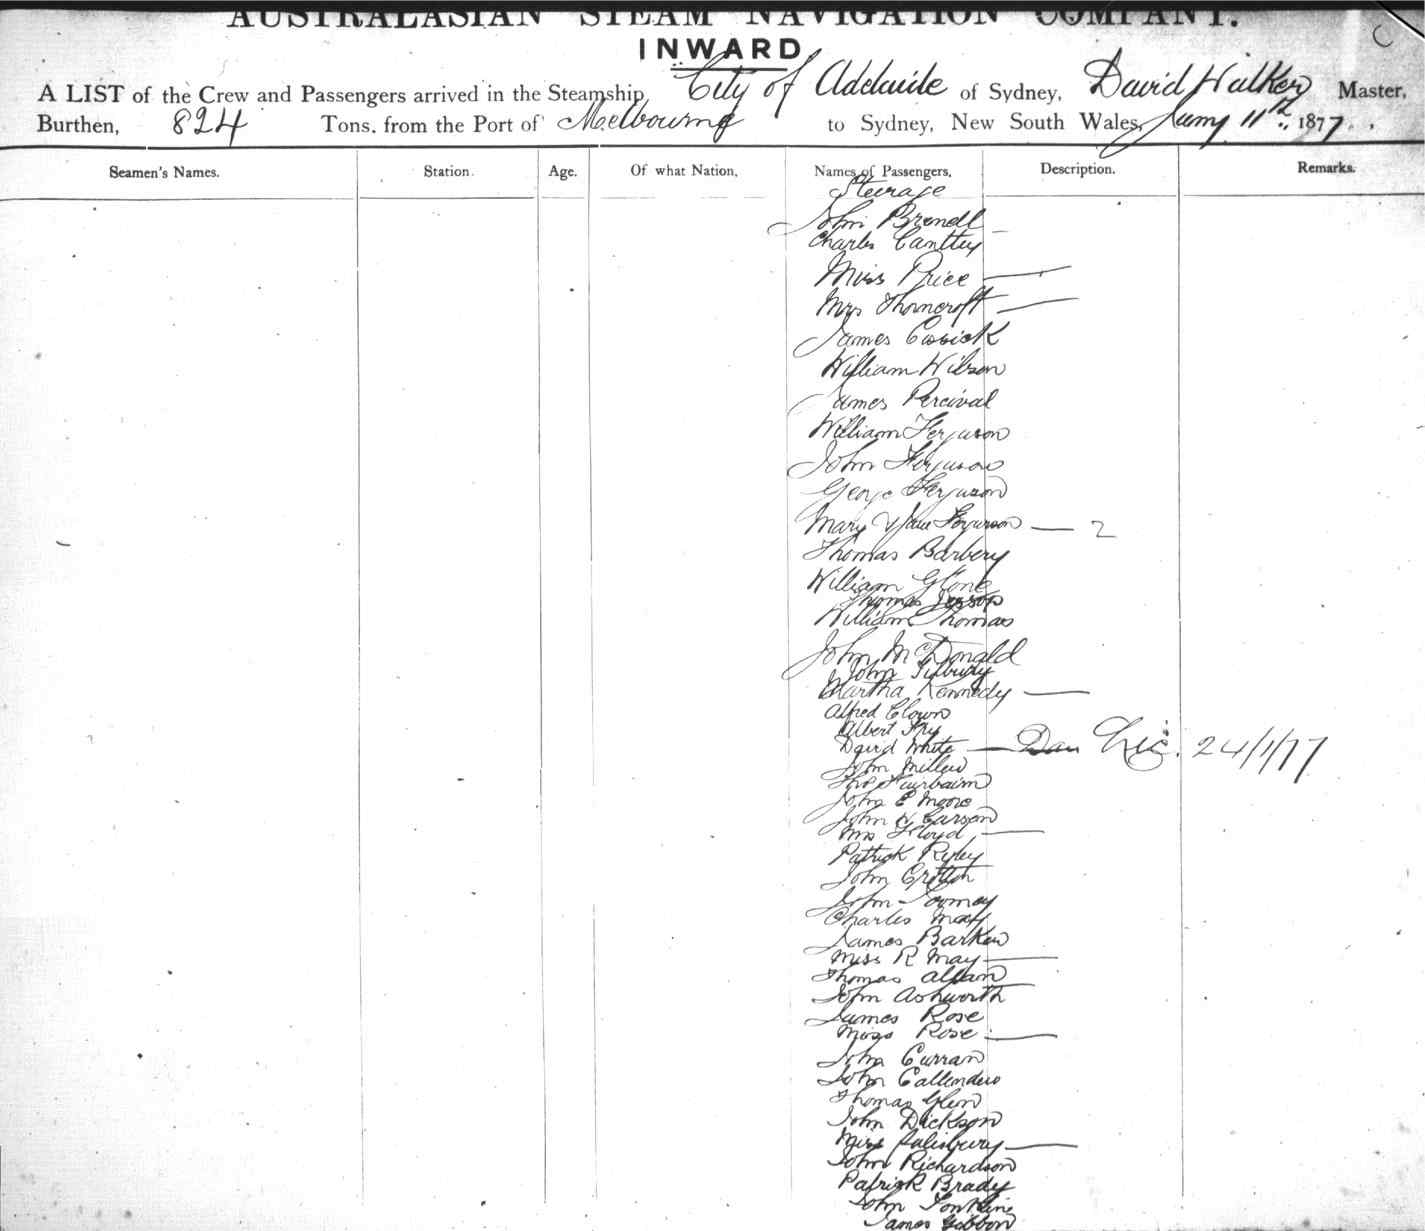 AUSTRALASIAN STEAM NAVIGATION COMPANY.
INWARD
A LIST of the Crew and Passengers arrived in the Steamship City of Adelaide of Sydney, David Walker Master,
Burthen, 824 Tons, from the Port of Melbourne to Sydney, New South Wales, 11th 1877
Seamen's Names. Station. Age. Of what Nation, Names of Passengers, Description. Remarks.
Steerage
John
Charles
Miss Price
Mrs Thorncroft
James Cusick
William Wilson
James Percival
William Ferguson
John Ferguson
George Ferguson
Mary Jane Ferguson — 2
Thomas Barbery
William
Thomas Jessop
William Thomas
John McDonald
John Tilbury
Martha Kennedy
Alfred Clown
Albert Fry
David White 24/1/77
John Miller
Thos Fairbairn
John E Moore
John W Carson
Mrs Floyd
Patrick Ryley
John
John Toomey
Charles May
James Barker
Miss R May
Thomas Allan
John Ashworth
James Rose
Miss Rose
John Curran
John Callender
Thomas Glen
John Dickson
Miss Salisbury
John Richardson
Patrick Brady
John Tonkline
James Gibbon